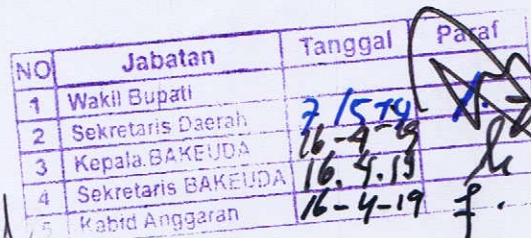 NO Jabatan Tanggal Paraf
1 Wakil Bupati
2 Sekretaris Daerah
3 Kepala BAKEUDA 16-4-19
4 Sekretaris BAKEUDA 16.4.19
5 Kabid Anggaran 16-4-19